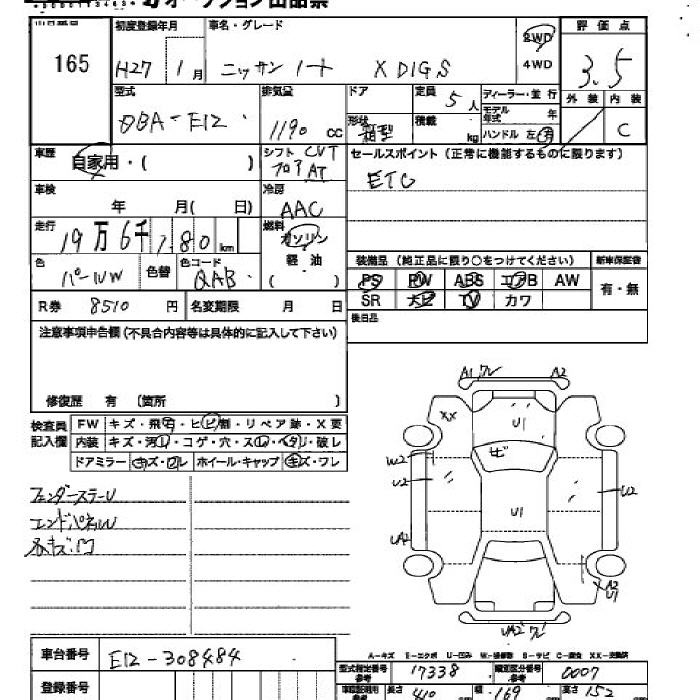 オークション出品票
165
初度登録年月 車名・グレード
H27 1月 ニッサン ノート X DIG S
2WD
4WD
評価点
3.5
外装 内装
C
型式 DBA-E12
排気量 1190 cc
ドア
形状 箱型
定員 5人
積載 kg
ディーラー・並行
モデル年式 年
ハンドル 左・右
車歴 自家用・( )
シフト CVT
フロア AT
セールスポイント (正常に機能するものに限ります)
ETC
車検 年 月( 日)
冷房 AAC
走行 19万6千780km
燃料 ガソリン
軽油
( )
色 パールW
色替
色コード QAB
装備品 (純正品に限り○をつけてください) 新車保証書
PS PW ABS エアB AW 有・無
SR ナビ TV カワ
R券 8510円 名変期限 月 日
後日品
注意事項申告欄(不具合内容等は具体的に記入して下さい)
修復歴 有 (箇所 )
検査員記入欄
FW キズ・飛石・ヒビ割・リペア跡・X要
内装 キズ・汚レ・コゲ・穴・スレ・ヘタリ・破レ
ドアミラー キズ・ワレ ホイール・キャップ キズ・ワレ
フェンダーステーU
エンドパネルU
A1 ワレ A2
XX
U1
サビ
W2
U2
U2
U1
UA2
A2
U1
UA2 ワレ
A-キズ E-エクボ U-凹み W-補修跡 S-サビ C-腐食 XX-交換済
車台番号 E12-308484
登録番号
型式指定番号 参考 17338 類別区分番号 参考 0007
車庫証明用 参考 長さ 410 幅 169 高さ 152